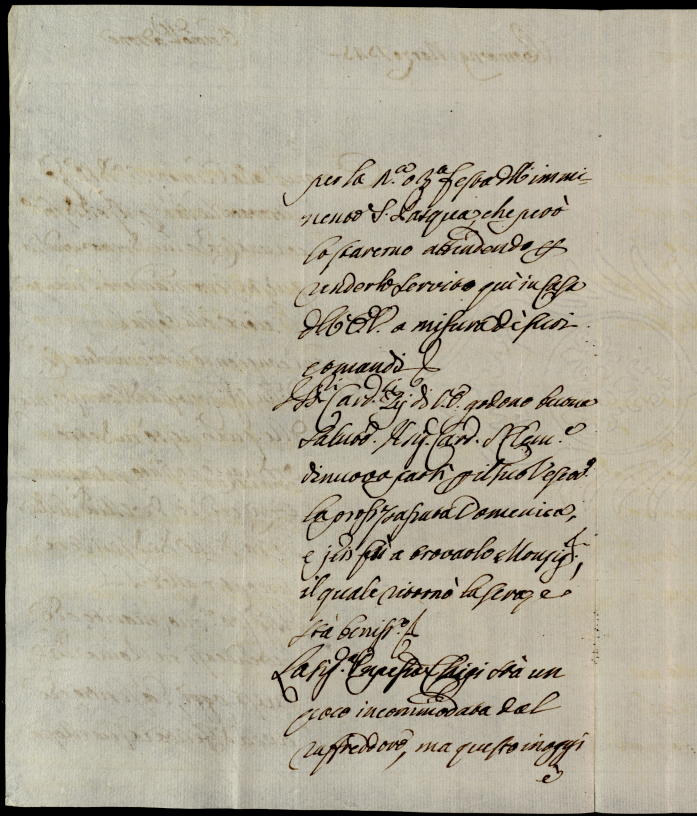 per la 2.a o 3.a festa dell immi-
nente S. Pasqua, che però
lo staremo attendendo p
renderlo servito quì in Casa
dell' E.V. a misura de suoi
comandi
Li SS.i Card.li Zij di V.E. godono buona
salute. Il Sig. Card. S. Clem.e
di nuovo partì p il suo Vescov.o
la pross. passata Domenica,
e jeri fù a trovarlo Monsig.,
il quale ritornò la sera, e
stà beniss.o
La Sig.a Cntessa Chigi stà un
poco incommodata dal
raffreddore, ma questo in oggi
è